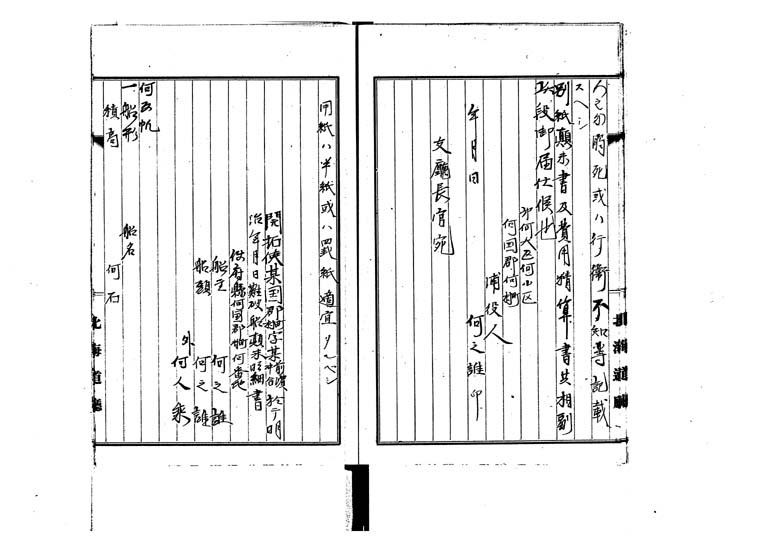 人之内溺死或ハ行衛不知等記載
スヘシ
別紙顛末書及費用精算書共相副
此段御届仕候也
年月日
第何大区何小区
何国郡何村
浦役人
何之誰印
支廳長官宛
用紙ハ半紙或ハ罫紙適宜タルベシ
開拓使某国郡村字某前浜
沖合
於テ明
治年月日難破船顛末明細書
何府縣何国郡村何番地
船主
何之誰
船頭
何之誰
外
何人乗
何反帆
一船形
船名
積高
何石
北海道廳
北海道廳